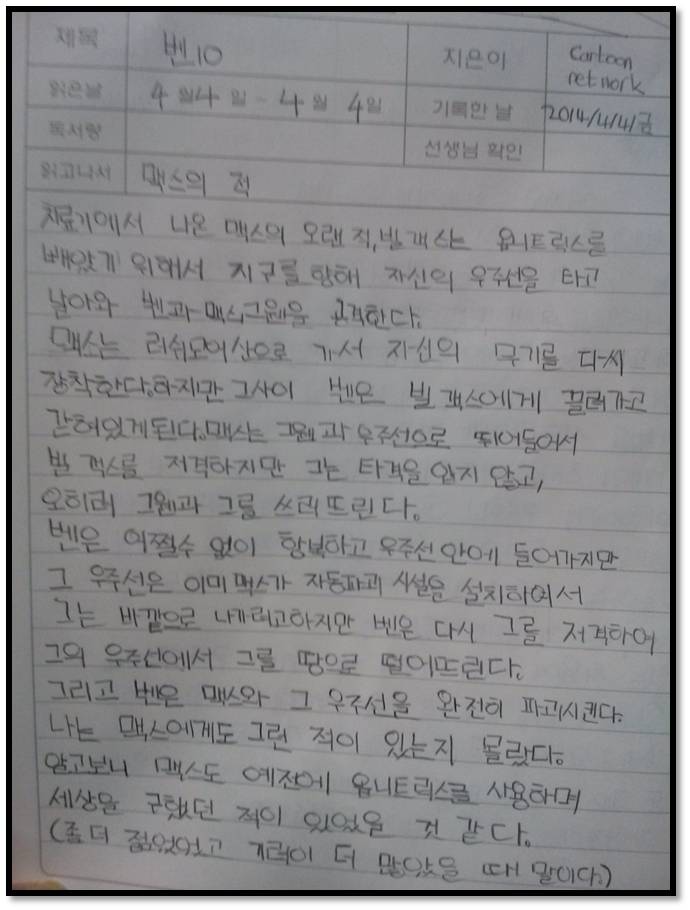 제목 벤10 지은이 Cartoon network
읽은날 4월4일 - 4월 4일 기록한 날 2014/4/4/금
독서량 선생님 확인
읽고나서 맥스의 적
치료기에서 나온 맥스의 오랜 적, 빌객스는 옴니트릭스를
빼앗기 위해서 지구를 향해 자신의 우주선을 타고
날아와 벤과 맥스, 그웬을 공격한다.
맥스는 러쉬모어산으로 가서 자신의 무기를 다시
장착한다. 하지만 그사이 벤은 빌객스에게 끌려가고
갇혀있게된다. 맥스는 그웬과 우주선으로 뛰어들어서
빌객스를 저격하지만 그는 타격을 입지 않고,
오히려 그웬과 그를 쓰러뜨린다.
벤은 어쩔수 없이 항복하고 우주선 안에 들어가지만
그 우주선은 이미 맥스가 자동파괴 시설을 설치하여서
그는 바깥으로 나가려고하지만 벤은 다시 그를 저격하여
그의 우주선에서 그를 땅으로 떨어뜨린다.
그리고 벤은 맥스와 그 우주선을 완전히 파괴시킨다.
나는 맥스에게도 그런 적이 있는지 몰랐다.
알고보니 맥스도 예전에 옴니트릭스를 사용하며
세상을 구했던 적이 있었을 것 같다.
(좀 더 젊었었고 기력이 더 많았을 때 말이다.)